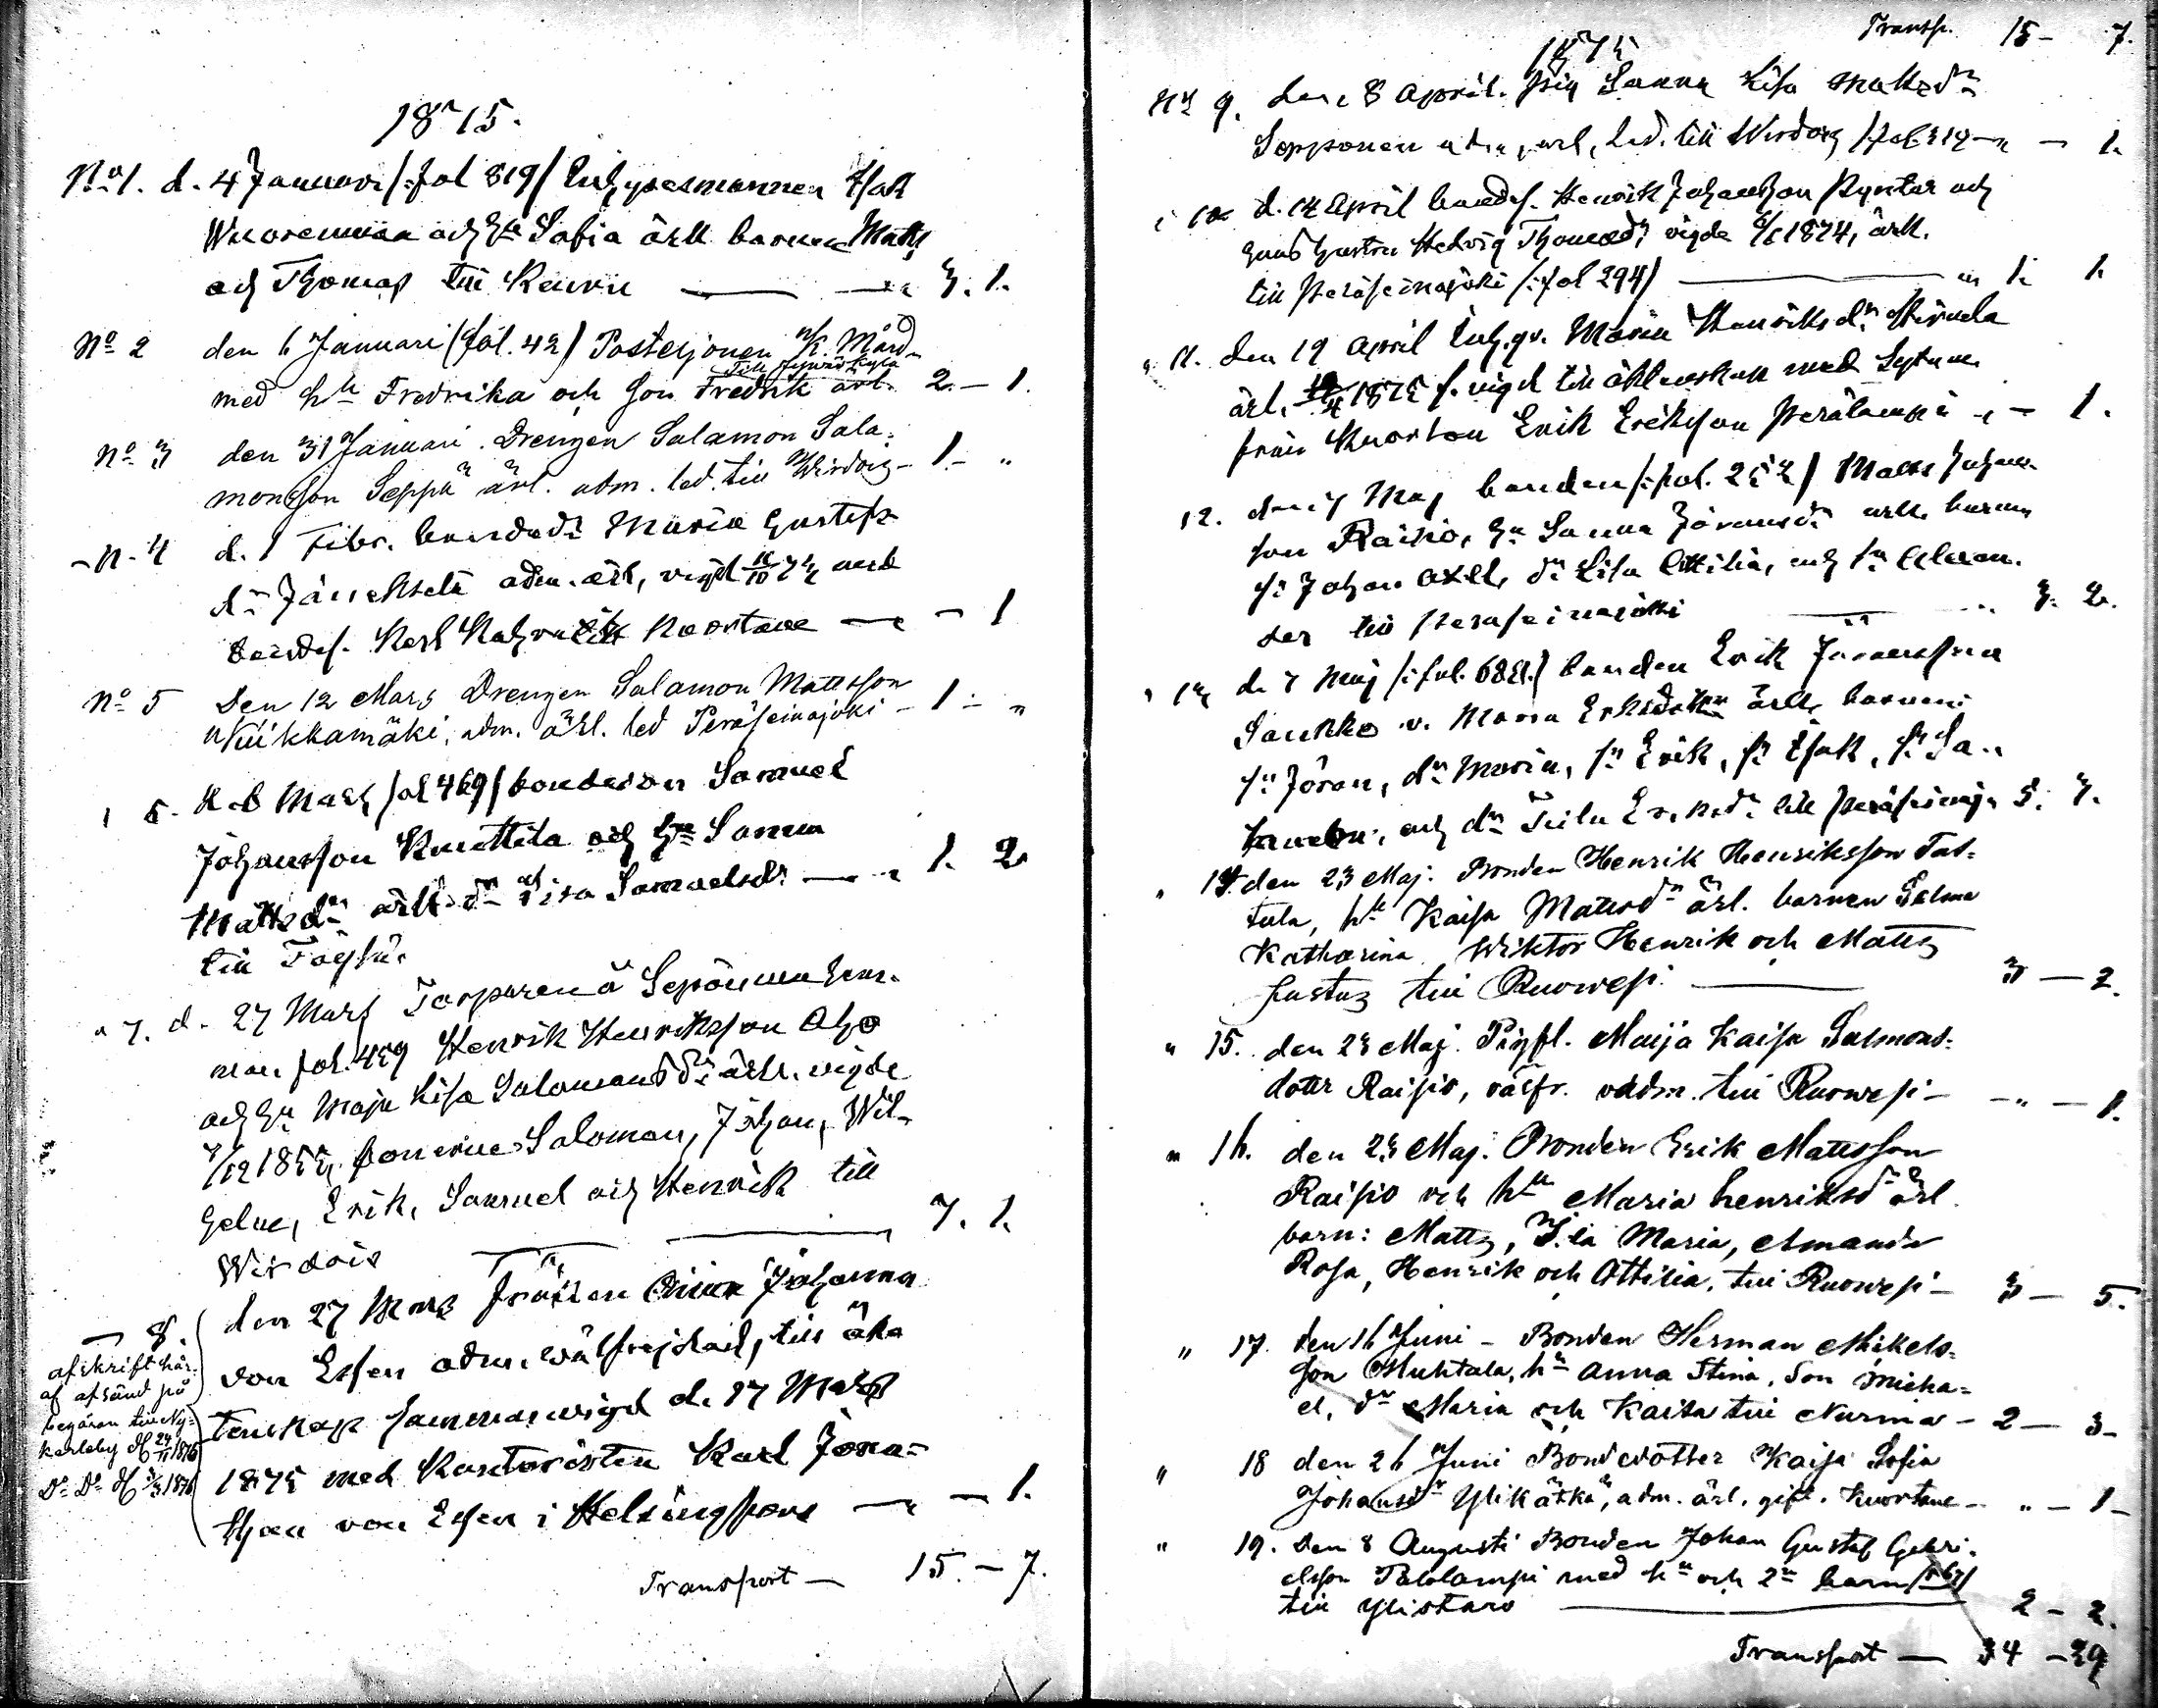 1875.
No 1. d. 4 Januari /: fol 819/ Inhysesmannen Isak
Wuorenmaa och Hu Sofia ärll barnen Matts
och Thomas till Keuru — — „ 3. 1.
No 2 den 6 Januari (fol. 42) Posteljonen K. Mård
Till Jyväskylä
med hu Fredrika och son Fredrik ärl. 2. — 1.
No 3 den 31 Januari. Drengen Salamon Sala-
monsson Seppä ärl. adm. led. till Wirdois — 1. — „
— N. 4 d. 1 Febr. bondedr Maria Gustafs
dr adm. ärl, vigd 75 med
bondes. Karl Kuortane — „ — 1
No 5 Den 12 Mars Drengen Salamon Mattsson
Niikkamäki, adm. ärl. led Peräseinäjoki — 1 — „
Mars fol 469/ bondeson Samuel
Johansson Knuttila och Hu Sanna
Mattsdr ärll dr Lisa Samuelsdr — „ 1. 2
till Töysä.
„ 7. d. 27 Mars Torparen å
man fol. 459 Henrik Henriksson Aho
och Hu Maja Lisa Salomonsdr ärll. vigde
/12 1855, sönerne Salomon, Johan, Wil-
helm, Erik, Samuel och Henrik till
Wirdois — 7. 1.
— 8. den 27 Mars Fröken Johanna
von Essen adm. wälfrejdad, till äkta
tenskap sammanvigd d. 17 Mars
1875 med Kantoristen Karl Jona-
than von Essen i Helsingfors — „ — 1.
afskrift här-
af afsänd på
begäran till Ny-
karleby d. 24/11 1876
Do Do d. 1876
Transport — 15. — 7.
Transp. 15 — 7.
1875
No 9. den 8 April. Pig. Sanna Lisa Mattsdr
Sepponen adm, ärl, led. till Wirdois /: fol — „ — 1.
„ 10 d. 14 April bondes. Henrik Johansson Ryntar och
hans hustru Hedvig Thomasdr vigde 1874, ärll.
till Peräseinäjoki /: fol 294/ — „ 1. 1.
„ 11. den 19 April Inh. gv. Maria Henriksdr
ärl. 1875 f. vigd till äktenskap med
från Kuortane Erik Eriksson Perälampi „ — 1.
12. den 7 Maj bonden /: fol. 252/ Matts Johans
son Raisio, Hu Sanna Jöransdr ärll. barnen
sn Johan Axel, dr Lisa Ottilia, och sn Alexan-
der till Peräseinäjoki — „ 3. 2.
„ 13 d. 7 Maj /: fol. 682./ bonden Erik Jöransson
Saukko o. Maria Eriksdotter ärll, barnen:
sn Jöran, dr Maria, sn Erik, sn Isak, sn Sa-
muel, och dr Eriksdr till Peräseinäj. 5. 3.
„ 14. den 23 Maj. Bonden Henrik Henriksson Tat-
tula, hu Kaisa Mattsdr ärl. barnen Selma
Katharina, Wiktor Henrik och Matts
Justus till Ruowesi — 3 — 2.
„ 15. den 23 Maj. Pigfl. Maija Kaisa Salmons-
dotter Raisio, välfr. oadm. till Ruowesi — — „ — 1.
„ 16. den 23 Maj. Bonden Erik Mattsson
Raisio och hu Maria Henriksdr ärl
barn: Matts, Ida Maria, Amanda
Rosa, Henrik och Ottilia, till Ruowesi — 3 — 5.
„ 17. den 16 Juni — Bonden Herman Mikels-
son Muhtala, hu Anna Stina, Son Micha-
el, dr Maria och Kaisa till Nurmo — 2 — 3 —
„ 18 den 26 Juni Bondedotter Kaisa Sofia
Johansdr Ylikätkä, adm. ärl. gift. Kuortane — „ — 1 —
„ 19. den 8 Augusti Bonden Johan Gustaf Gabri-
elsson Palolampi med hu och 2ne barn
till Ylistaro — 2 — 2.
Transport — 34 — 29